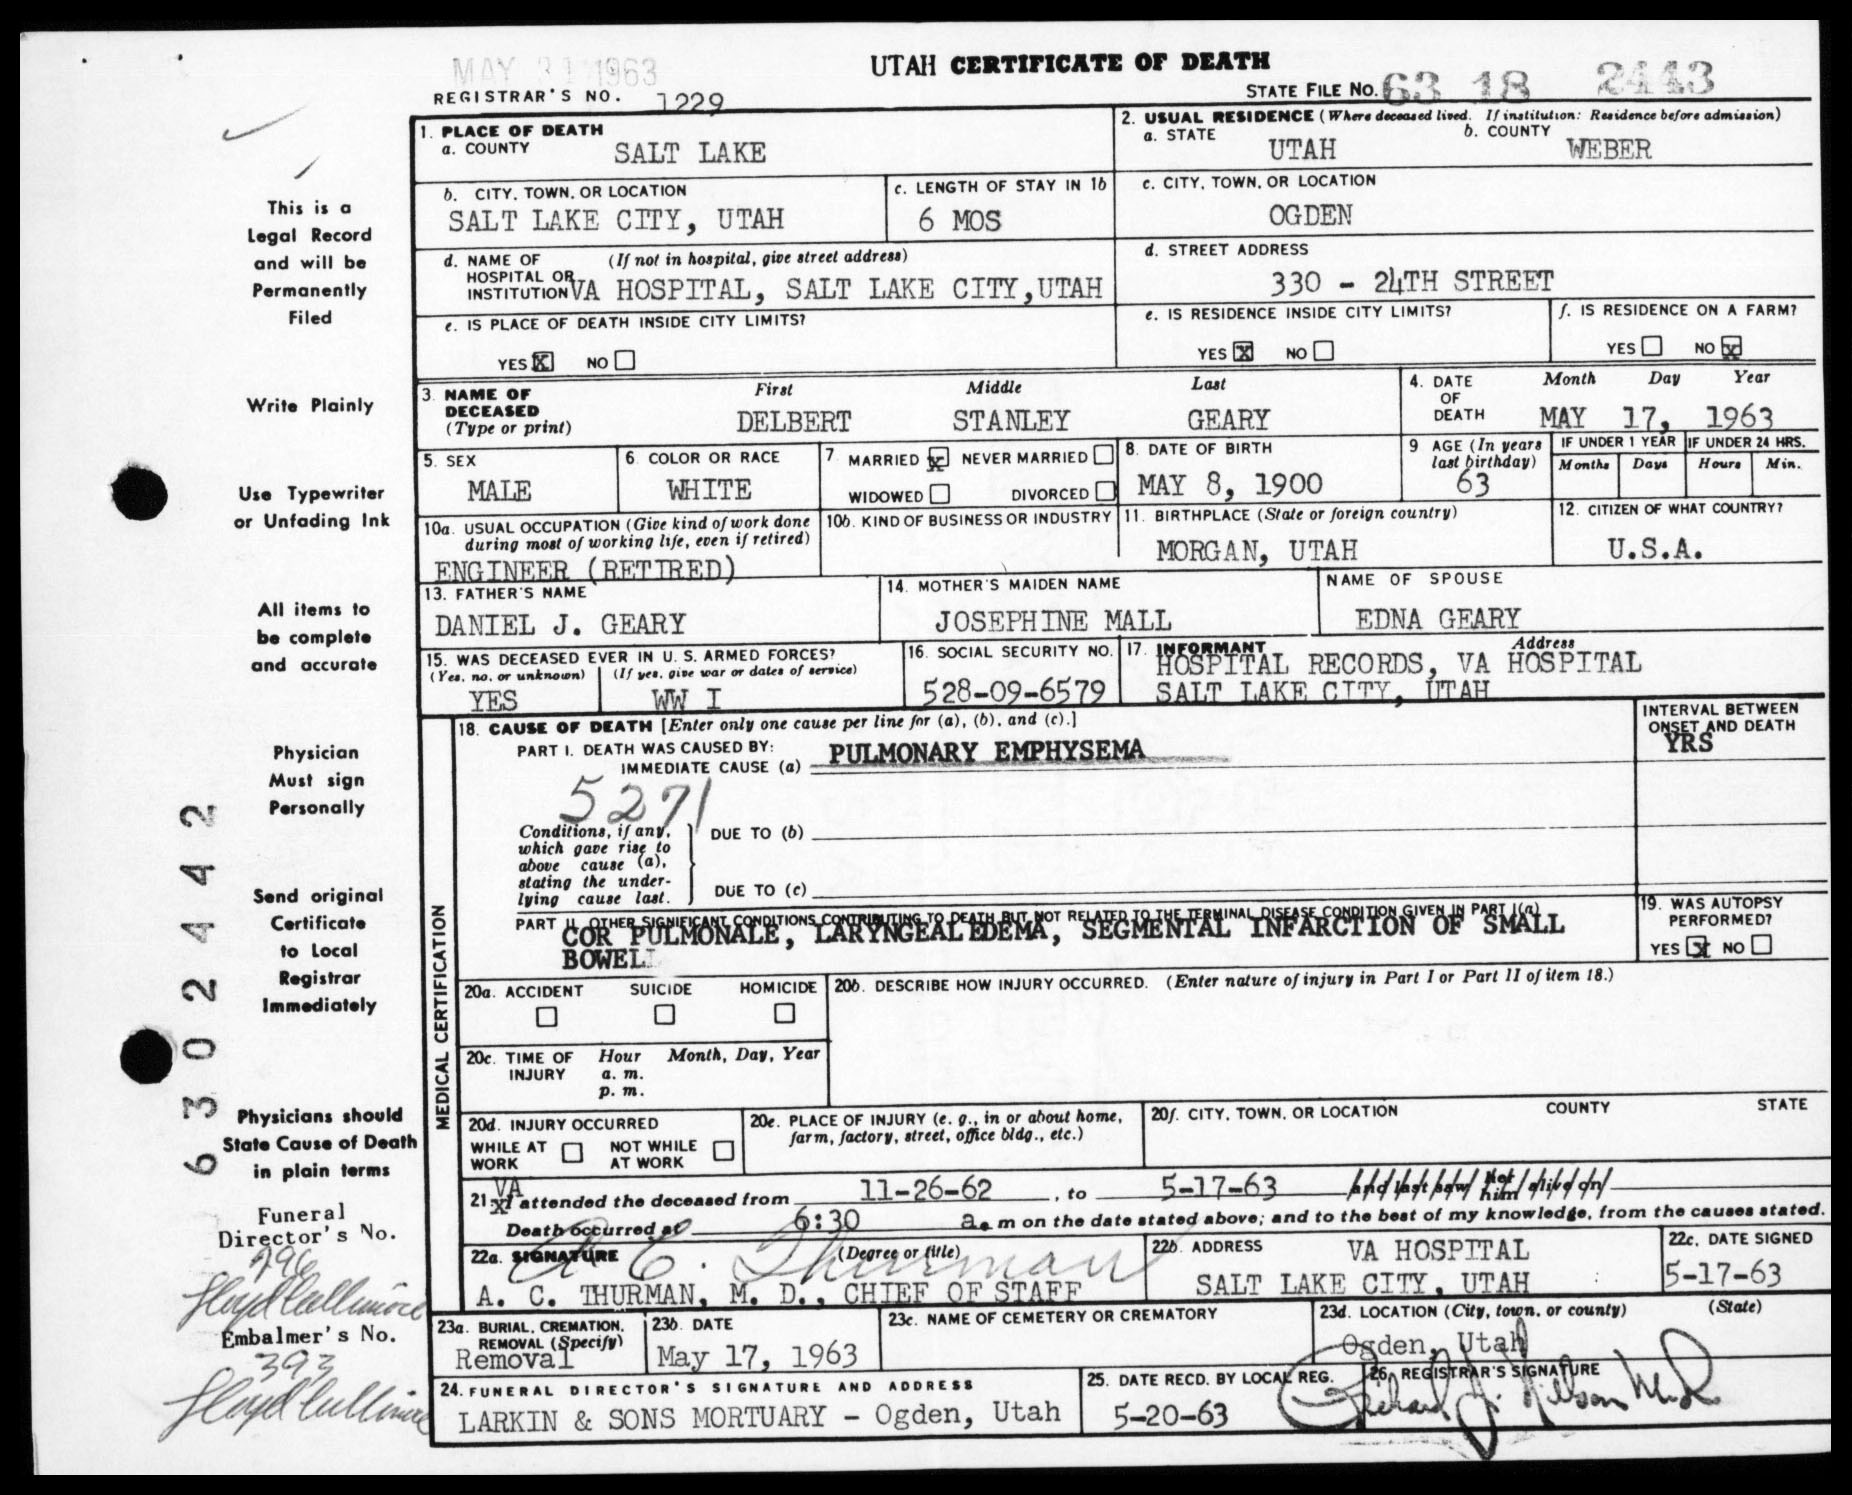 MAY 31 1963
UTAH CERTIFICATE OF DEATH
REGISTRAR'S NO. 1229
STATE FILE NO. 63 18 2443
1. PLACE OF DEATH
a. COUNTY SALT LAKE
2. USUAL RESIDENCE (Where deceased lived. If institution: Residence before admission)
a. STATE UTAH b. COUNTY WEBER
b. CITY, TOWN, OR LOCATION SALT LAKE CITY, UTAH
c. LENGTH OF STAY IN 1b 6 MOS
c. CITY, TOWN, OR LOCATION OGDEN
d. NAME OF HOSPITAL OR INSTITUTION (If not in hospital, give street address)
VA HOSPITAL, SALT LAKE CITY, UTAH
d. STREET ADDRESS
330 - 24TH STREET
e. IS PLACE OF DEATH INSIDE CITY LIMITS?
YES X NO
e. IS RESIDENCE INSIDE CITY LIMITS?
YES X NO
f. IS RESIDENCE ON A FARM?
YES NO X
3. NAME OF DECEASED (Type or print)
First Middle Last
DELBERT STANLEY GEARY
4. DATE OF DEATH Month Day Year
MAY 17, 1963
5. SEX MALE
6. COLOR OR RACE WHITE
7. MARRIED X NEVER MARRIED
WIDOWED DIVORCED
8. DATE OF BIRTH
MAY 8, 1900
9 AGE (In years last birthday) 63
IF UNDER 1 YEAR Months Days
IF UNDER 24 HRS. Hours Min.
10a. USUAL OCCUPATION (Give kind of work done during most of working life, even if retired)
ENGINEER (RETIRED)
10b. KIND OF BUSINESS OR INDUSTRY
11. BIRTHPLACE (State or foreign country)
MORGAN, UTAH
12. CITIZEN OF WHAT COUNTRY?
U.S.A.
13. FATHER'S NAME
DANIEL J. GEARY
14. MOTHER'S MAIDEN NAME
JOSEPHINE MALL
NAME OF SPOUSE
EDNA GEARY
15. WAS DECEASED EVER IN U. S. ARMED FORCES?
(Yes, no, or unknown) (If yes, give war or dates of service)
YES WW I
16. SOCIAL SECURITY NO.
528-09-6579
17. INFORMANT Address
HOSPITAL RECORDS, VA HOSPITAL
SALT LAKE CITY, UTAH
MEDICAL CERTIFICATION
18. CAUSE OF DEATH [Enter only one cause per line for (a), (b), and (c).]
INTERVAL BETWEEN ONSET AND DEATH
PART I. DEATH WAS CAUSED BY:
IMMEDIATE CAUSE (a) PULMONARY EMPHYSEMA
YRS
5271
Conditions, if any, which gave rise to above cause (a), stating the underlying cause last.
DUE TO (b)
DUE TO (c)
PART II. OTHER SIGNIFICANT CONDITIONS CONTRIBUTING TO DEATH BUT NOT RELATED TO THE TERMINAL DISEASE CONDITION GIVEN IN PART I(a)
COR PULMONALE, LARYNGEAL EDEMA, SEGMENTAL INFARCTION OF SMALL
BOWEL
19. WAS AUTOPSY PERFORMED?
YES X NO
20a. ACCIDENT SUICIDE HOMICIDE
20b. DESCRIBE HOW INJURY OCCURRED. (Enter nature of injury in Part I or Part II of item 18.)
20c. TIME OF INJURY Hour Month, Day, Year
a. m.
p. m.
20d. INJURY OCCURRED
WHILE AT WORK NOT WHILE AT WORK
20e. PLACE OF INJURY (e. g., in or about home, farm, factory, street, office bldg., etc.)
20f. CITY, TOWN, OR LOCATION COUNTY STATE
21. VA XI attended the deceased from 11-26-62, to 5-17-63 and last saw her him alive on
Death occurred at 6:30 a. m on the date stated above; and to the best of my knowledge, from the causes stated.
22a. SIGNATURE (Degree or title)
A C. Thurman
A. C. THURMAN, M. D., CHIEF OF STAFF
22b. ADDRESS VA HOSPITAL
SALT LAKE CITY, UTAH
22c. DATE SIGNED
5-17-63
23a. BURIAL, CREMATION, REMOVAL (Specify)
Removal
23b. DATE
May 17, 1963
23c. NAME OF CEMETERY OR CREMATORY
23d. LOCATION (City, town, or county) (State)
Ogden, Utah
24. FUNERAL DIRECTOR'S SIGNATURE AND ADDRESS
LARKIN & SONS MORTUARY - Ogden, Utah
25. DATE RECD. BY LOCAL REG.
5-20-63
26. REGISTRAR'S SIGNATURE
This is a
Legal Record
and will be
Permanently
Filed
Write Plainly
Use Typewriter
or Unfading Ink
All items to
be complete
and accurate
Physician
Must sign
Personally
Send original
Certificate
to Local
Registrar
Immediately
Physicians should
State Cause of Death
in plain terms
Funeral
Director's No.
796
Floyd Cullimore
Embalmer's No.
393
Floyd Cullimore
6302442